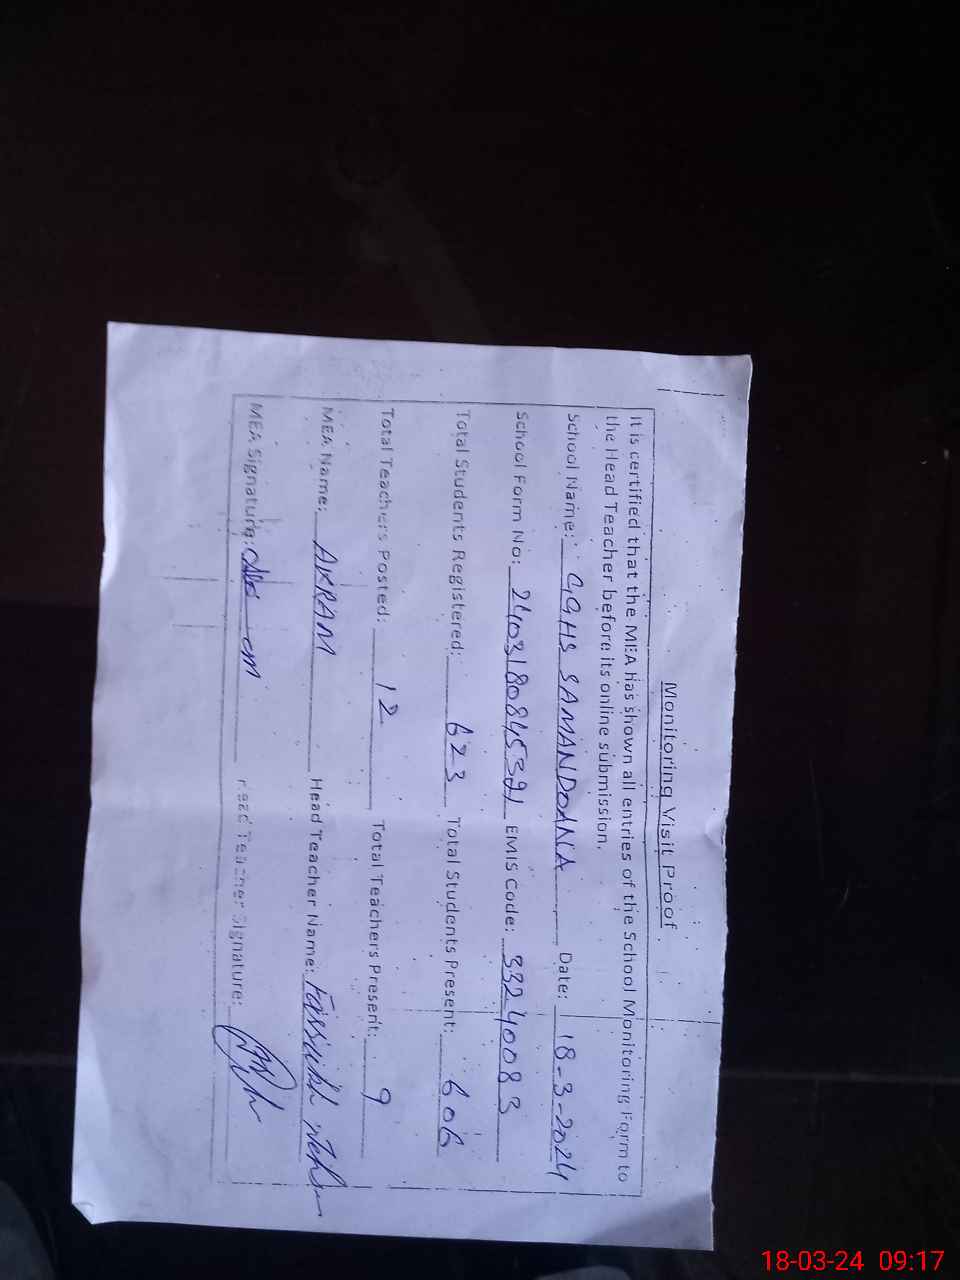 Monitoring Visit Proof
It is certified that the MEA has shown all entries of the School Monitoring Form to
the Head Teacher before its online submission.
School Name: GGHS SAMANDOANA Date: 18-3-2024
School Form No: EMIS Code: 33240083
Total Students Registered: 623 Total Students Present: 606
Total Teachers Posted: 12 Total Teachers Present: 9
MEA Name: AKRAM Head Teacher Name:
MEA Signature: Head Teacher Signature:
18-03-24 09:17